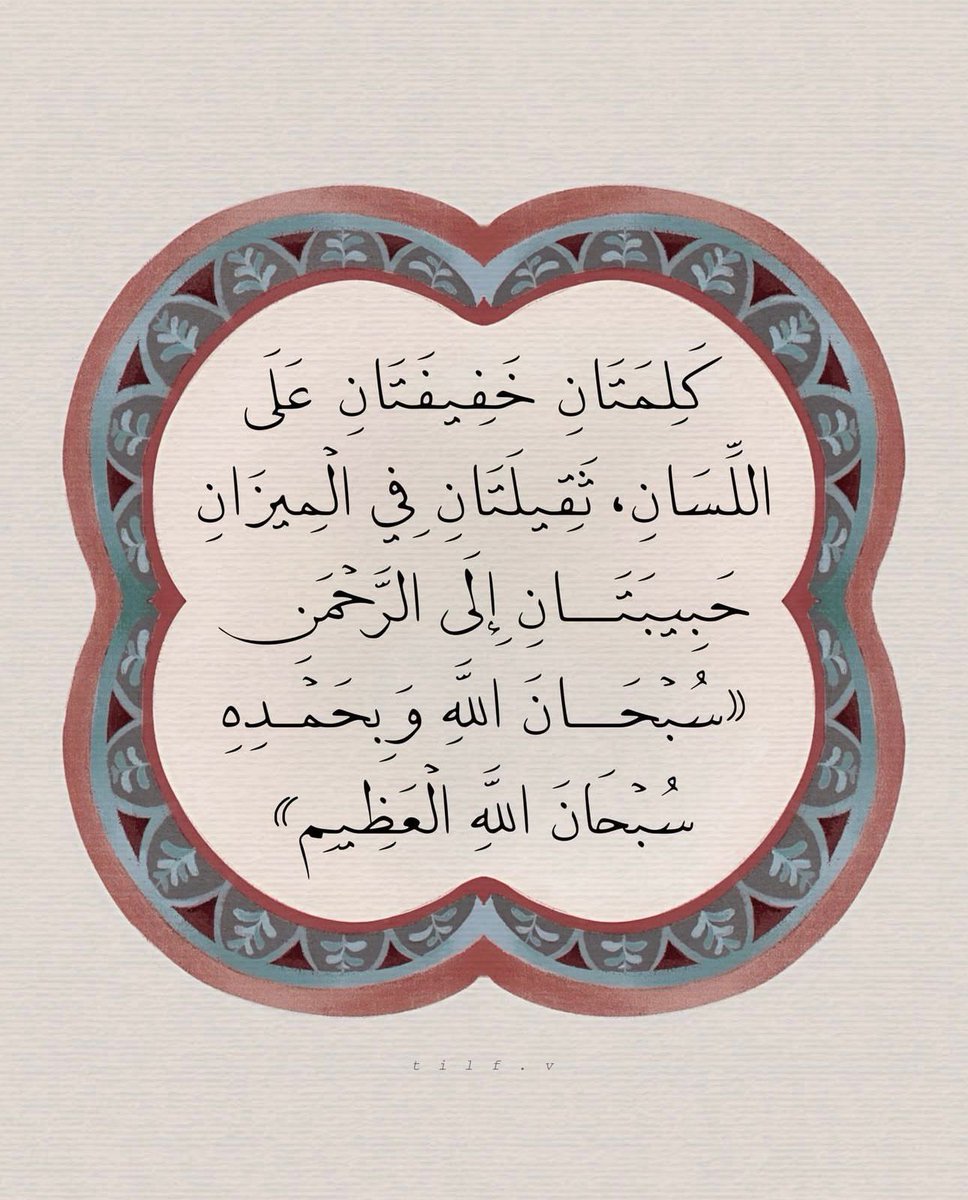 كَلِمَتَانِ خَفِيفَتَانِ عَلَى
اللِّسَانِ، ثَقِيلَتَانِ فِي الْمِيزَانِ
حَبِيبَتَـــانِ إِلَى الرَّحْمَنِ
«سُبْحَـــانَ اللَّهِ وَبِحَمْـدِهِ
سُبْحَانَ اللَّهِ الْعَظِيمِ»
tilf.v